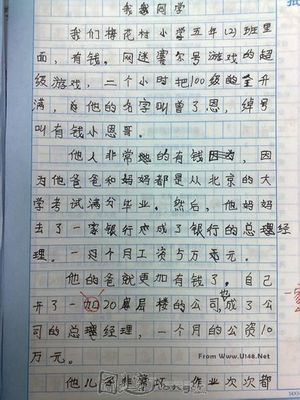 我同学
我们梅花村小学五年(2)班里
面,有钱。网迷赛尔号游戏的超
级游戏,二个小时把100级的全升
满,他的名字叫曾了恩,绰号
叫有钱小恩哥。
他人非常的有钱,因
为他爸爸和妈妈都是从北京的大
学考试满分毕业。然后,他妈妈
去了一家银行成了银行的总理经
理。一个月工资5万元。
他的爸就更加有钱了。自己
开了一20层楼的公司,成了公
司的总理经理,一个月的公资10
万元。
他儿子非常坏,作业次次都
From Www.U148.Net